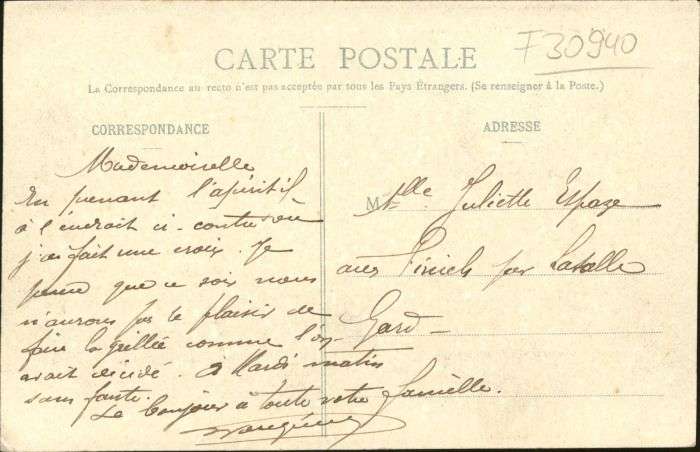 F30940
CARTE POSTALE
La Correspondance au recto n'est pas acceptée par tous les Pays Étrangers. (Se renseigner à la Poste.)
CORRESPONDANCE
Mademoiselle
En prenant l'apéritif
à l'endroit ci-contre où
j'ai fait une croix. Je
pense que ce soir nous
n'aurons pas le plaisir de
faire la grillée comme l'on
avait décidé. à Mardi matin
sans faute.
Le bonjour à toute votre famille.
ADRESSE
Mlle Juliette Espaze
aux par Lasalle
Gard